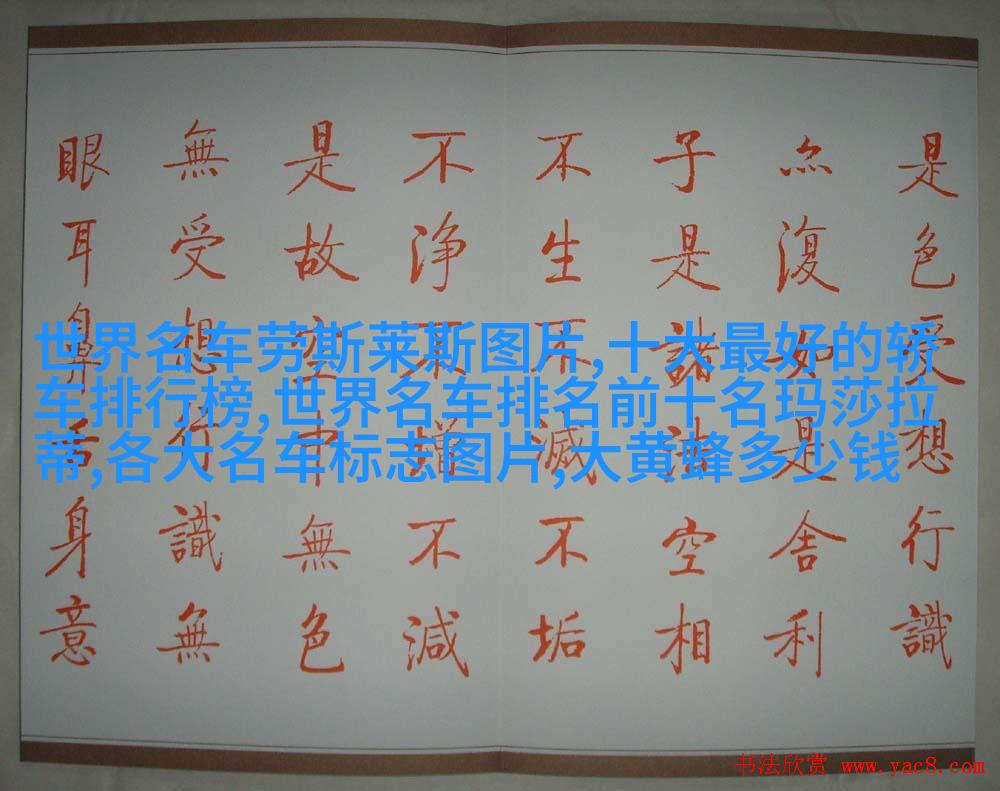 是色受想行識
亦復如是舍利
子是諸法空相
不生不滅不垢
不淨不增不減
是故空中無色
無受想行識無
眼耳鼻舌身意
世界名车劳斯莱斯图片,十大最好的轿
车排行榜,世界名车排名前十名玛莎拉
蒂,各大名车标志图片,大黄蜂多少钱
书法欣赏 www.yac8.com